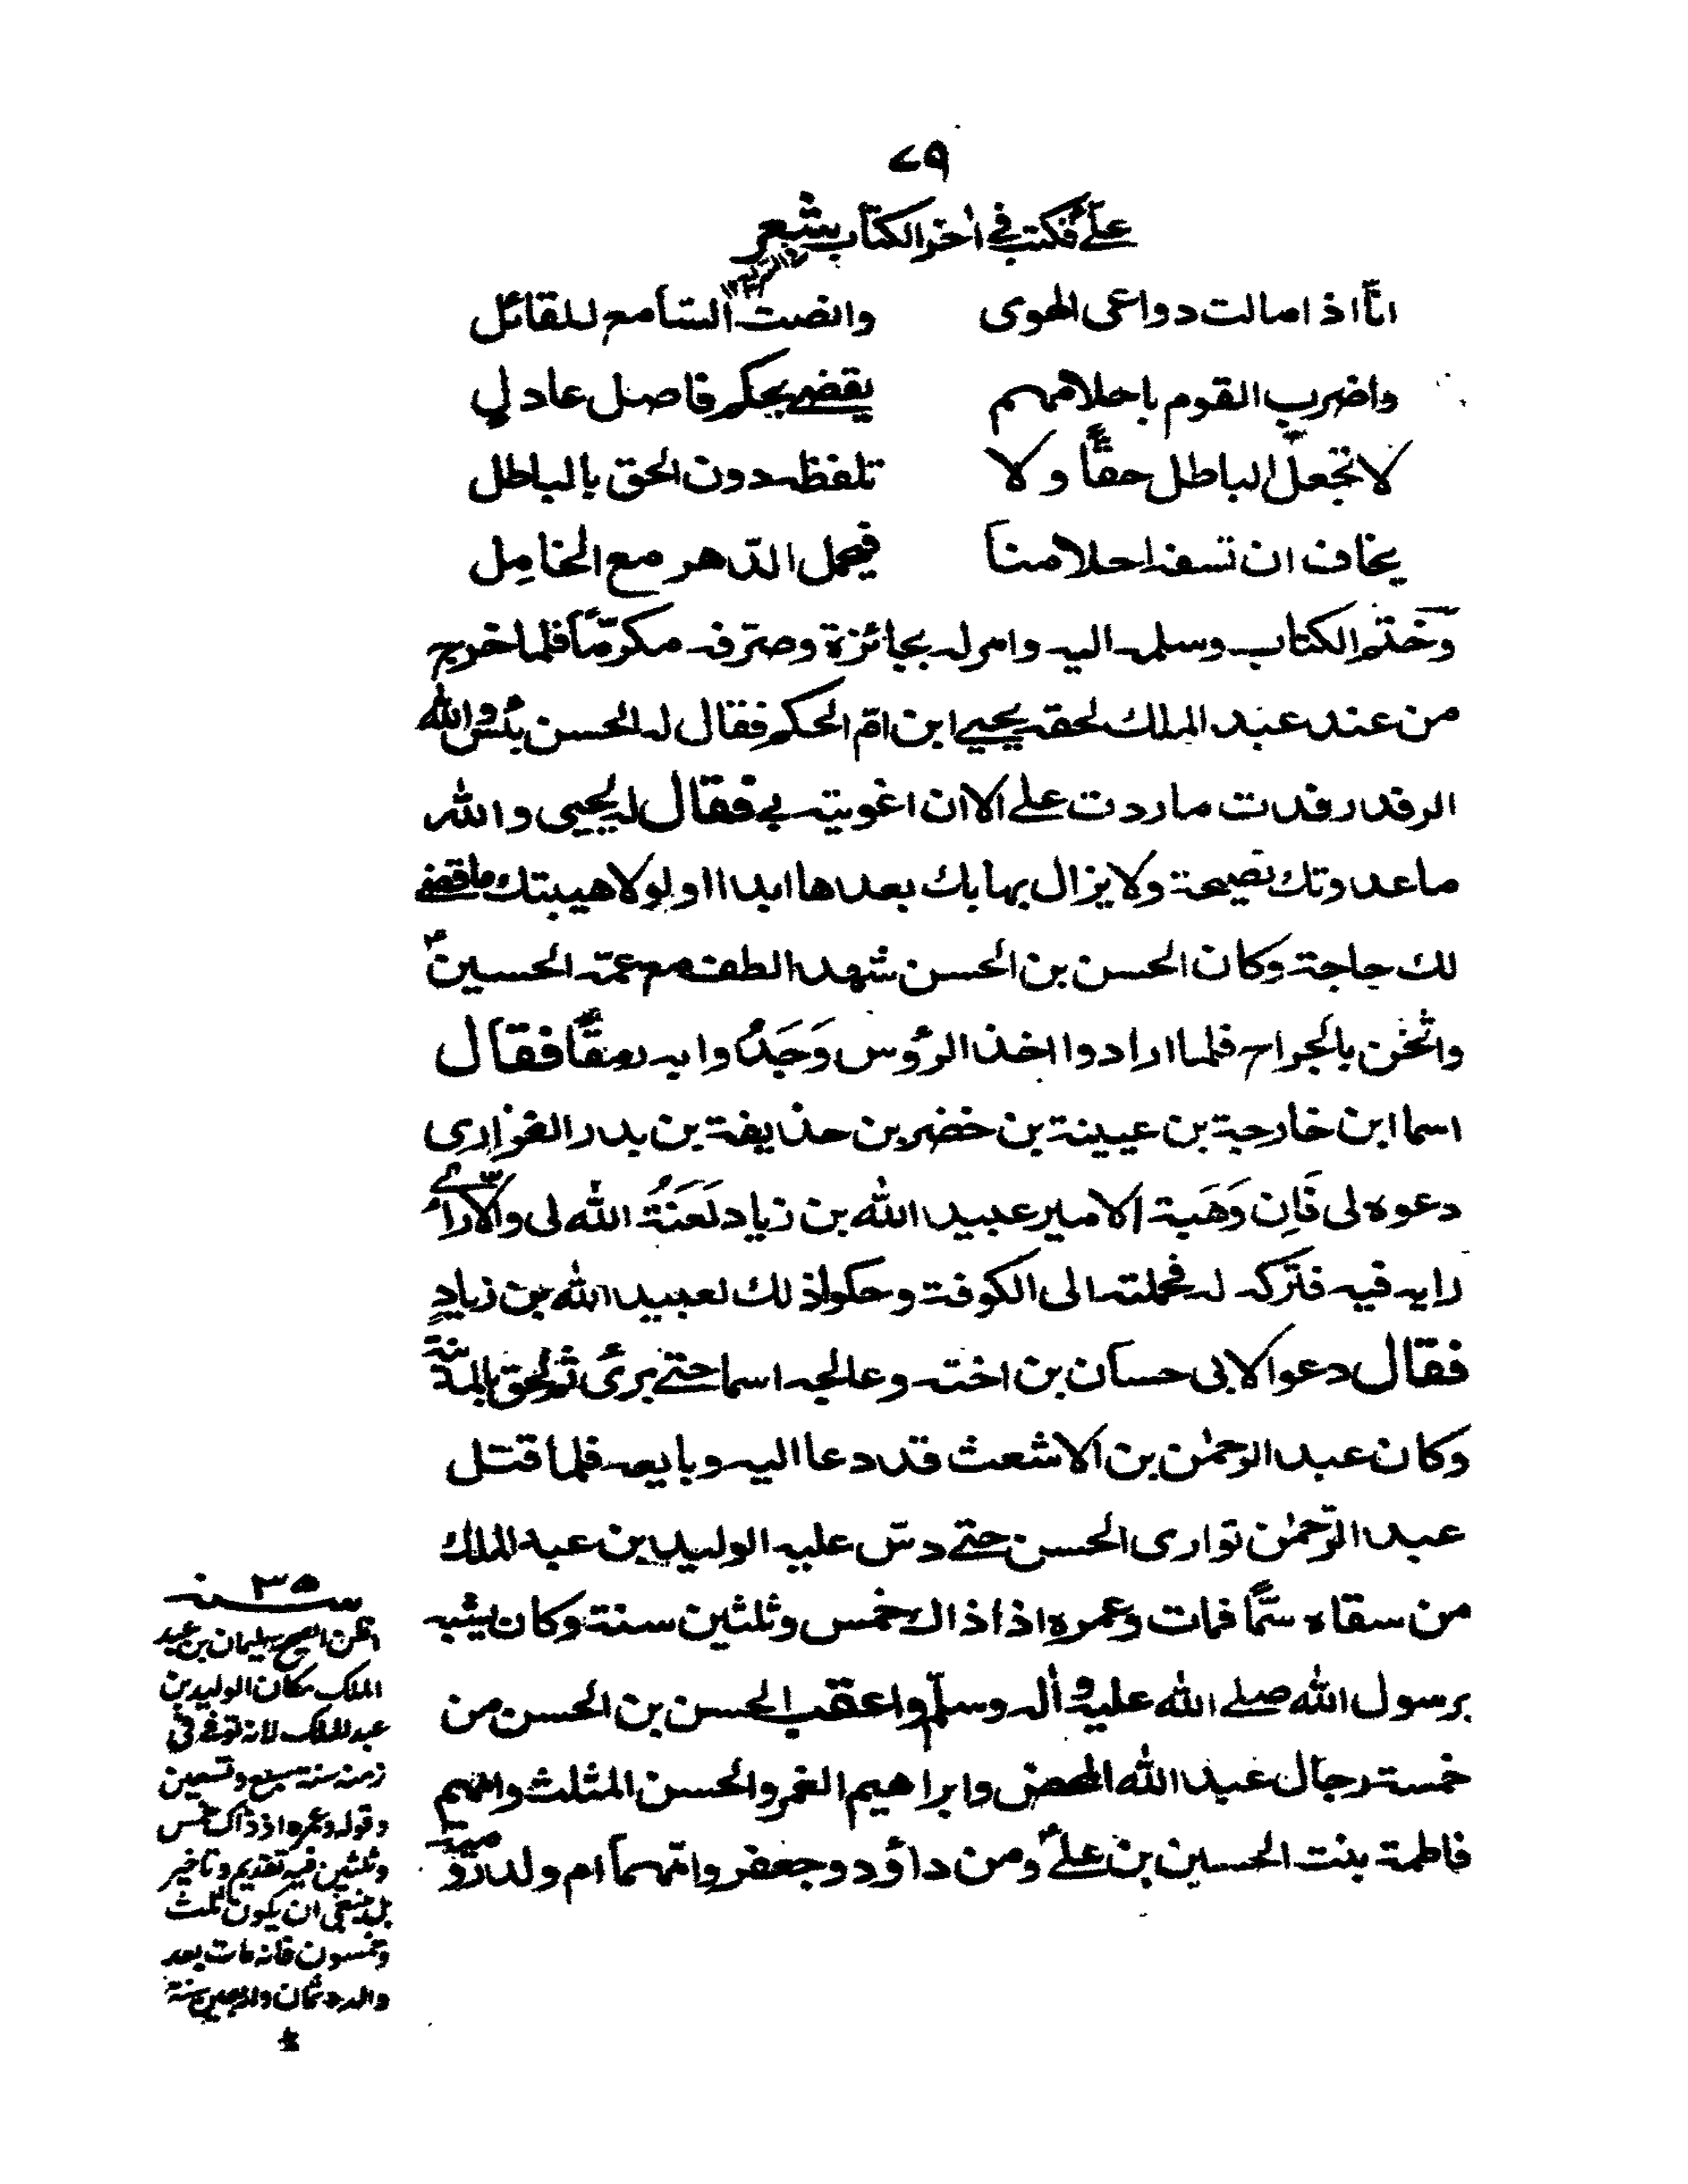 ٧٩
علىّ فكتب فى اٰخر الكتاب بشعر
انّا اذا مالت دواعى الهوى وانصت السّامع للقائل
واضرب القوم باحلامهم يقضے بحكم فاصل عادل
لا تجعل الباطل حقّاً ولا تلفظ دون الحق بالباطل
يخاف ان تسفه احلامنا فيحمل الدّهر مع الخامِل
وَختم الكتاب وسلمه اليه وامر له بجائزة وصرّفه مكرمّاً فلما خرج
من عند عبد الملك لحقه يحيےٰ ابن امّ الحكم فقال له الحسن بئس والله
الرفد رفدت ما ردت علے الا ان اغويته بى فقال له يحيى والله
ما عدوتك نصيحة ولا يزال يهابك بعدها ابداا ولولا هيبتك ما قضے
لك حاجة وكان الحسن بن الحسن شهد الطف مع عمه الحسينؑ
واثخن بالجراح فلما ارادوا اخذ الرؤس وَجَدُوا به رمقًا فقال
اسما ابن خارجة بن عيينة بن خضر بن حذيفة بن بدر الفزارى
دعوه لى فَاِن وَهَبه الامير عبيد الله بن زياد لَعَنَهُ الله لى والّا رائے
رايه فيه فتركه له فحمله الى الكوفة وحكوا ذلك لعبيد الله بن زيادٍ
فقال دعوا لابى حسان بن اخته وعالجه اسما حتے برئ ثم لحق بالمدينة
وكان عبد الرحمٰن بن الاشعث قد دعا اليه وبايعه فلما قتل
عبد الرّحمٰن توارى الحسن حتے دسّ عليه الوليد بن عبد الملك
من سقاه سمًّا فمات وعمره اذ اذاك خمس وثلثين سنة وكان يشبه
برسول الله صلے الله عليه واٰله وسلّم واعقب الحسن بن الحسن من
خمسة رجال عبد الله المحض وابراهيم الغمر والحسن المثلث وامهم
فاطمة بنت الحسين بن علےؑ ومن داؤد وجعفر وامّهما ام ولد رومية
سنه ٣٥
اظن الصحيح سليمان بن عبد
الملك مكان الوليد بن
عبد الملك لانه توفے فى
زمنه سنة سبع وتسعين
وقوله وعمره اذ ذاك خمس
وثلثين فيه تقديم وتاخير
بل ينبغى ان يكون ثلث
وخمسون فانه مات بعد
والده ثمان واربعين سنة